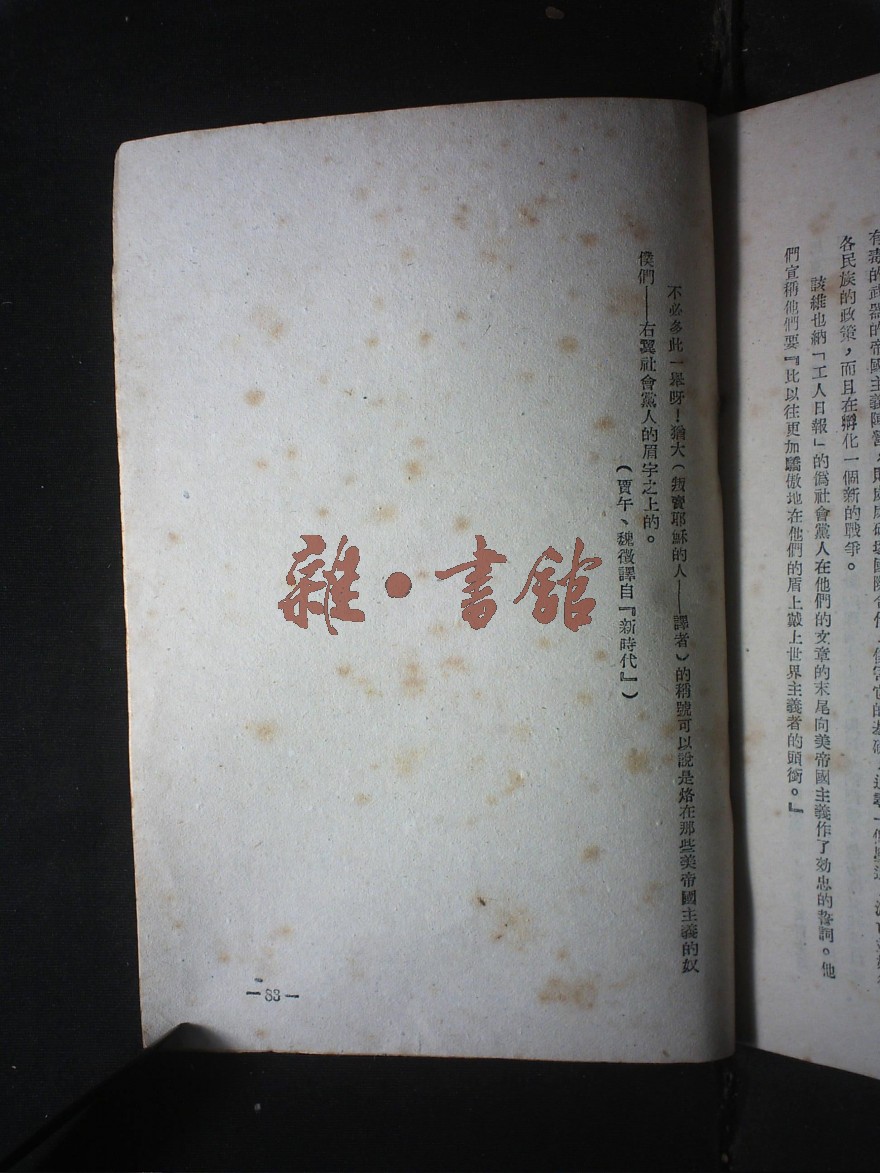 各民族的政策，而且在孵化一個新的戰爭。
該維也納「工人日報」的偽社會黨人在他們的文章的末尾向美帝國主義作了効忠的誓詞。他
們宣稱他們要『比以往更加驕傲地在他們的盾上戴上世界主義者的頭銜。』
不必多此一舉呀！猶大（叛賣耶穌的人——譯者）的稱號可以說是烙在那些美帝國主義的奴
僕們——右翼社會黨人的眉宇之上的。
（賈午、魏徵譯自『新時代』）
雜·書館
—83—